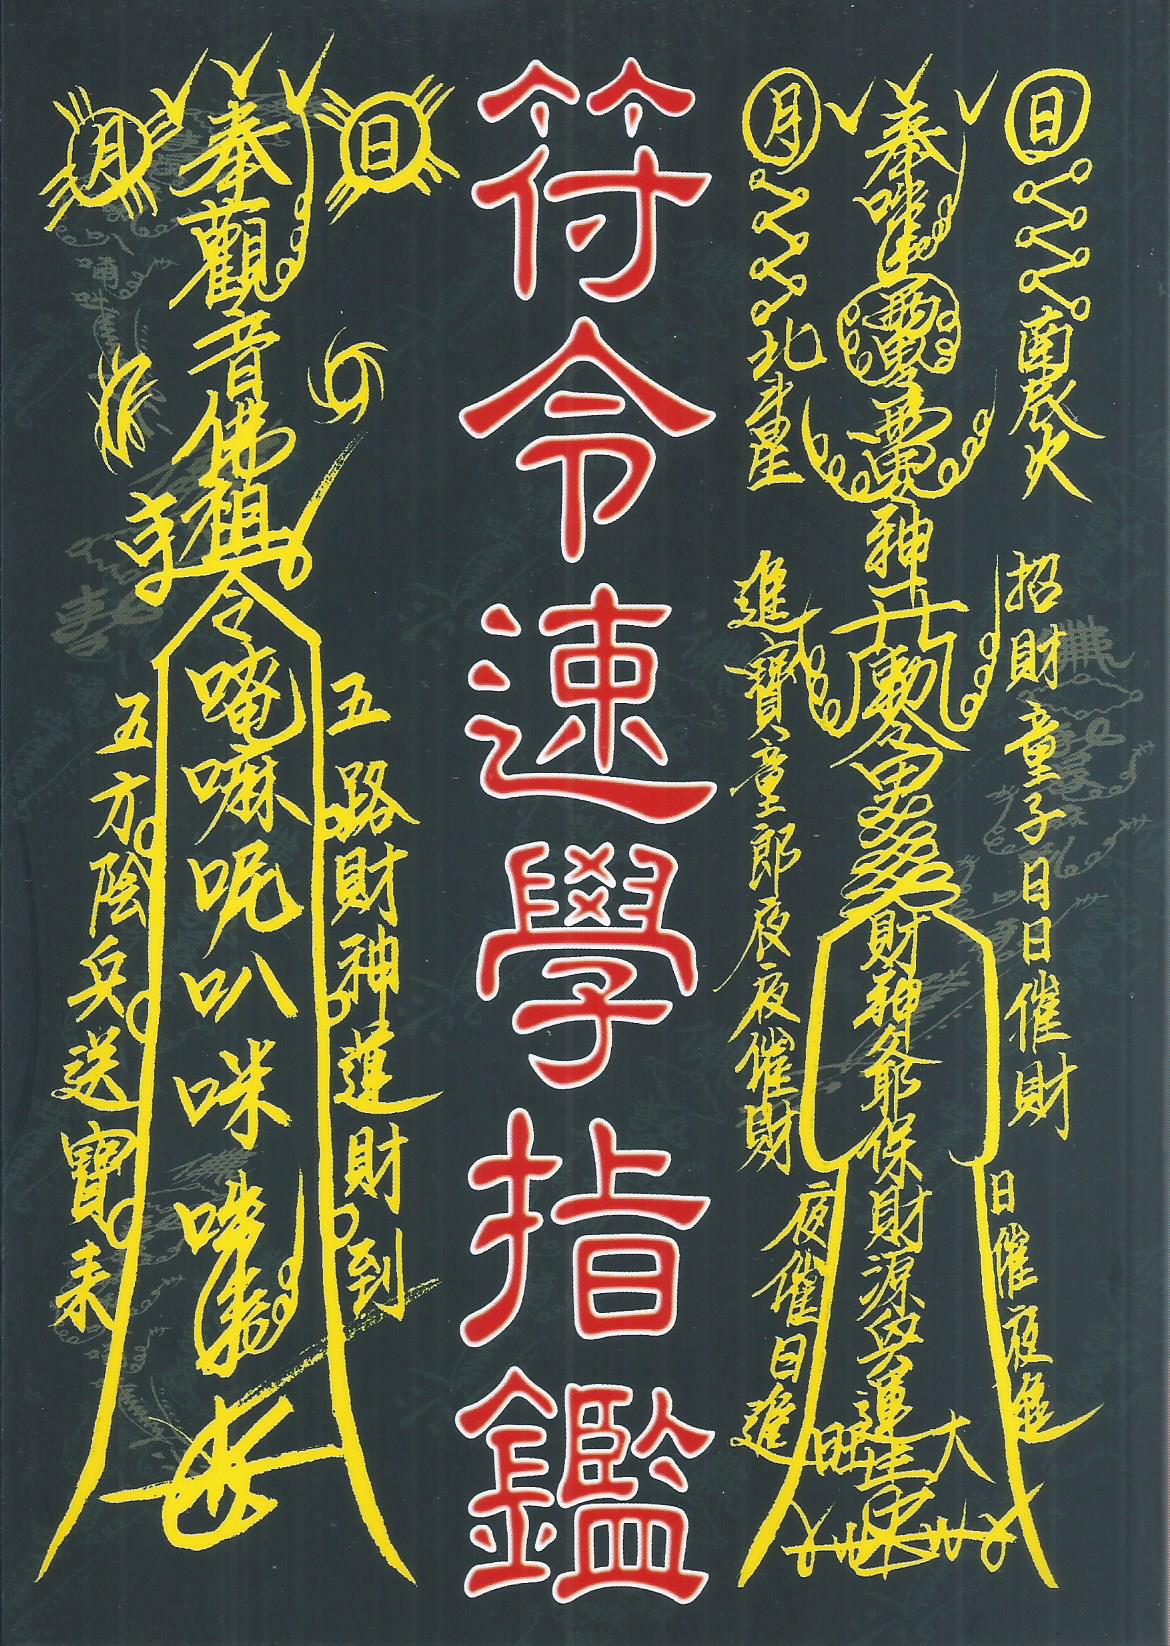 符令速學指鑑
日
月
南辰火
北斗星
招財童子日日催財
進寶童郎夜夜催財
日催夜進
夜催日進
神
財神爺保財源興運
大
旺
日
月
奉觀音佛祖令
唵嘛呢叭咪
五路財神運財到
五方陰兵送寶來